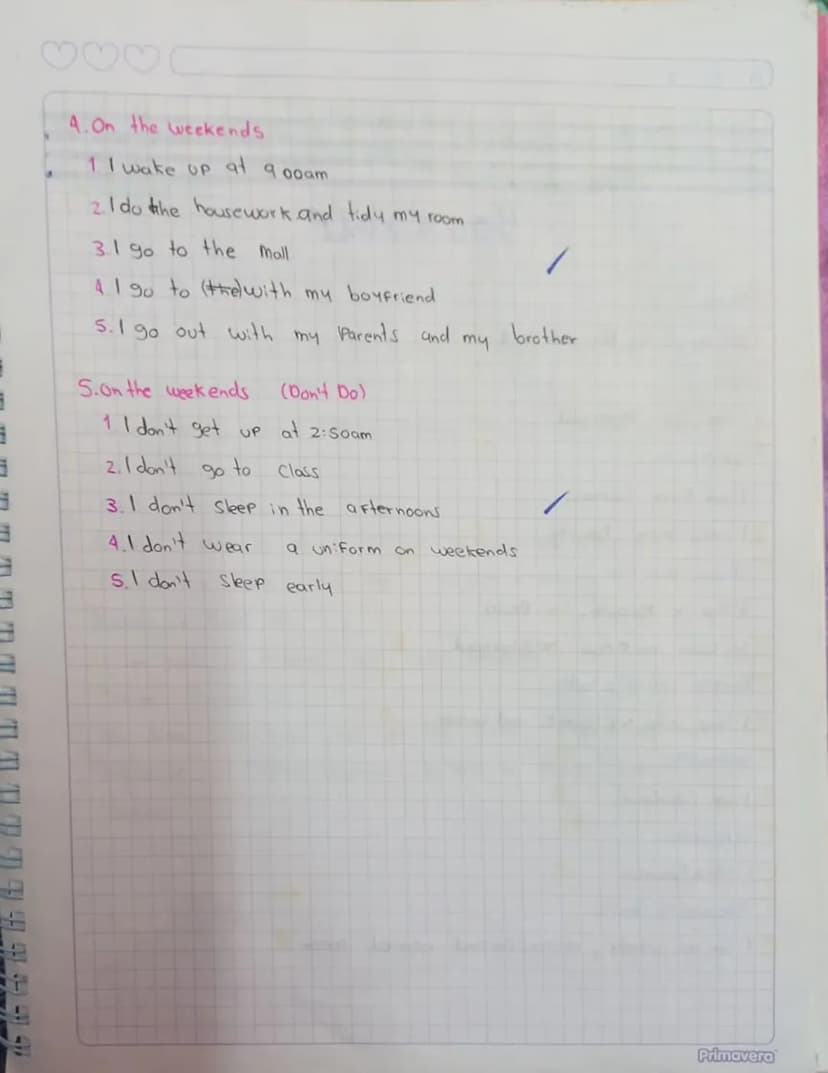 4. On the weekends
1 I wake up at 9 00am
2. I do the housework and tidy my room
3. I go to the mall
4 I go to (the) with my boyfriend
5. I go out with my Parents and my brother
5. on the weekends (Don't Do)
1 I don't get up at 2:50am
2. I don't go to class
3. I don't sleep in the afternoons
4. I don't wear a uniform on weekends
5. I don't sleep early
Primavera